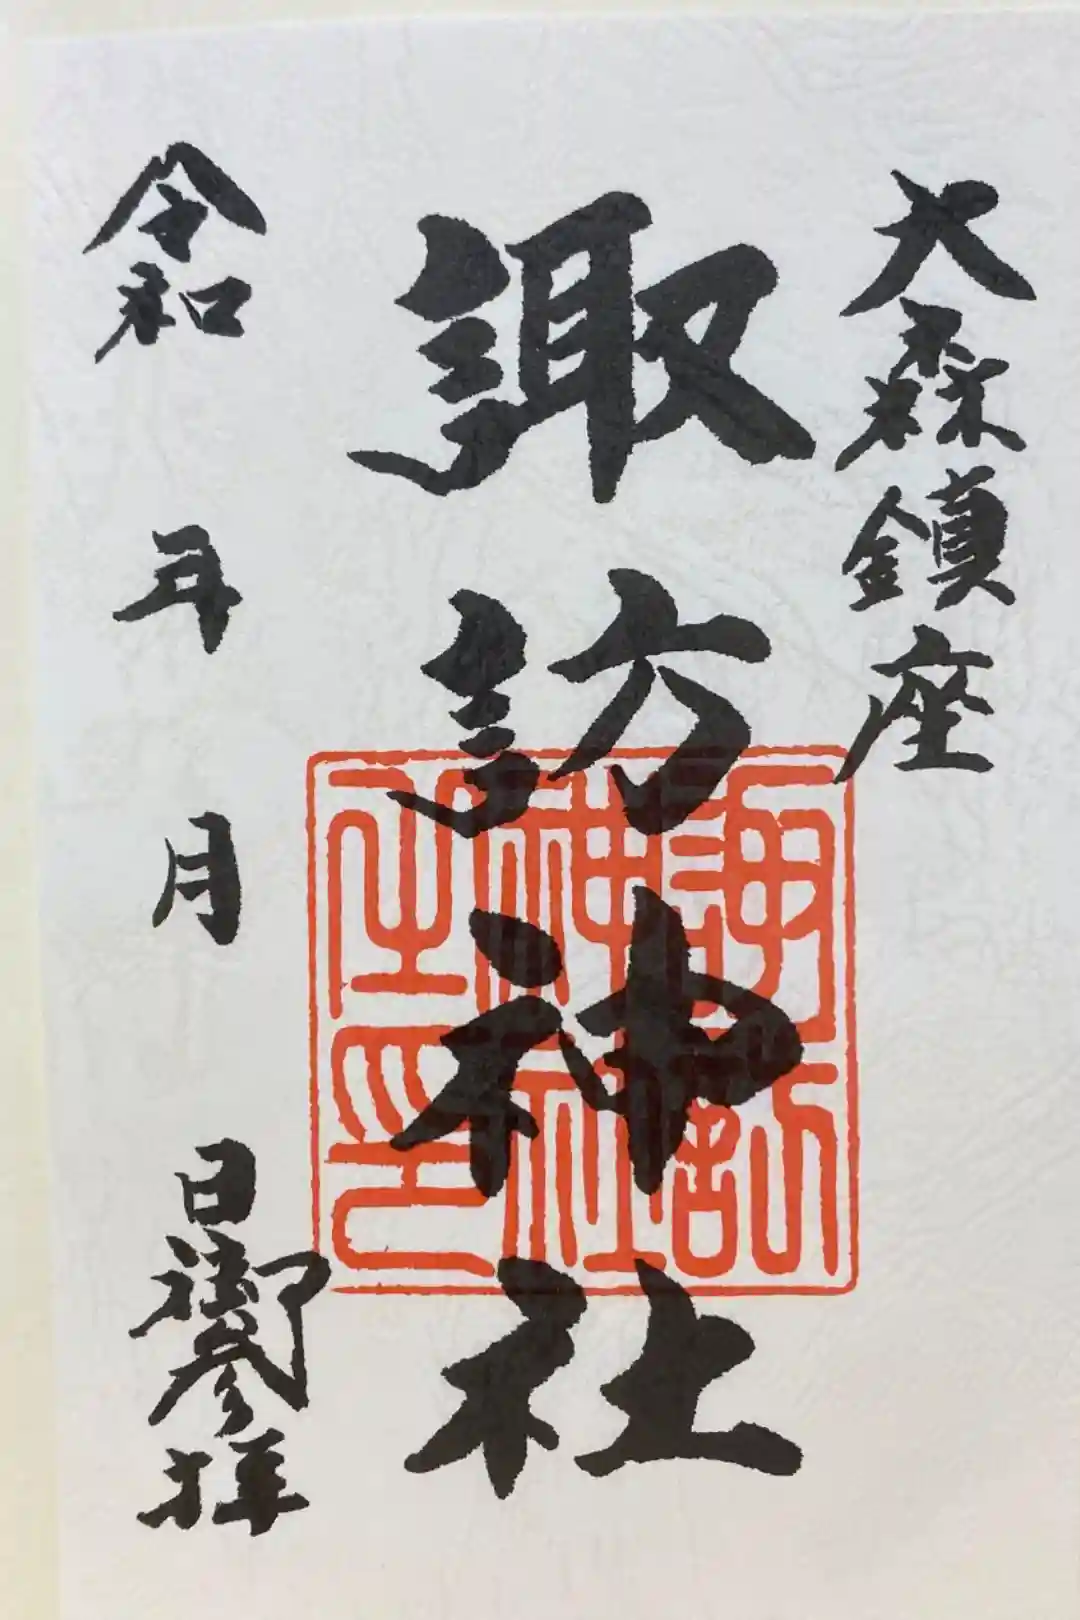 大森鎮座
諏訪神社
諏訪神社之印
令和 年 月 日 御参拝